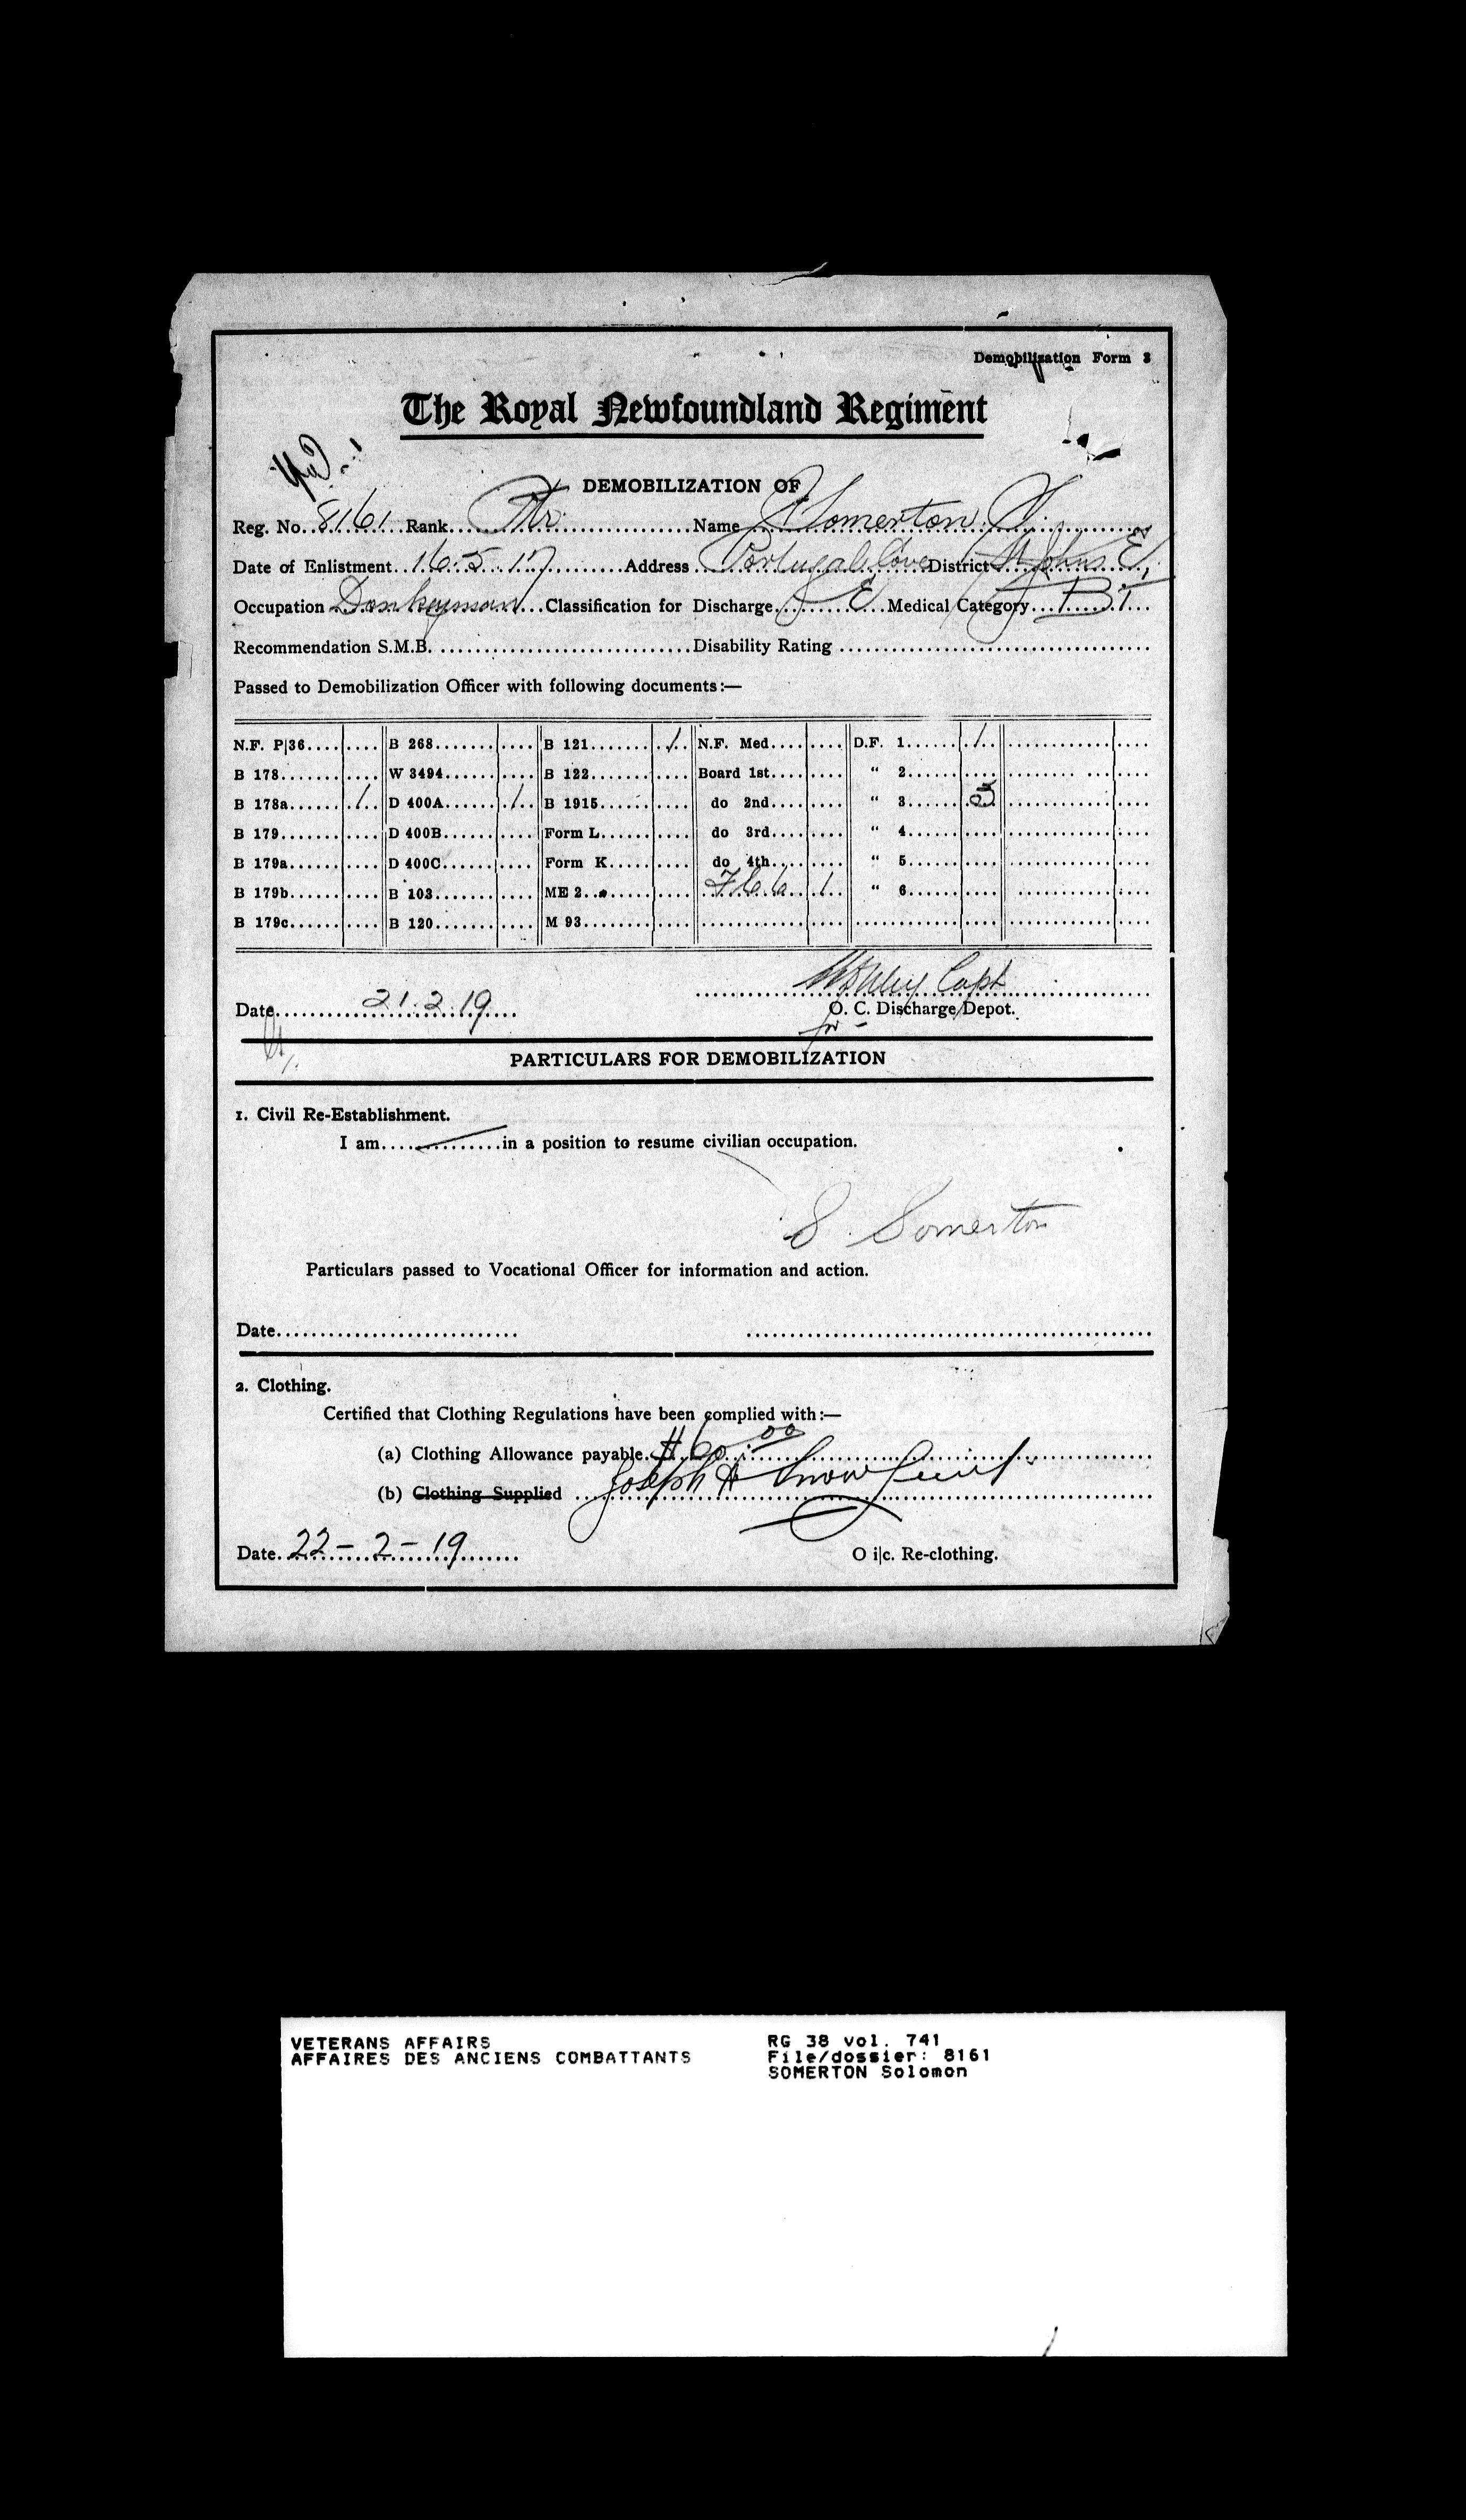 Demobilization Form 3
The Royal Newfoundland Regiment
DEMOBILIZATION OF
Reg. No. 8161 Rank Name Somerton S.
Date of Enlistment 16.5.17 Address Portugal Cove District St Johns E,
Occupation Donkeyman Classification for Discharge E Medical Category B I,
Recommendation S.M.B. Disability Rating
Passed to Demobilization Officer with following documents:—
N.F. P|36 B 268 B 121 / N.F. Med. D.F. 1 /
B 178 W 3494 B 122 Board 1st " 2
B 178a 1 D 400A 1 B 1915 do 2nd " 3 3
B 179 D 400B Form L do 3rd " 4
B 179a D 400C Form K do 4th " 5
B 179b B 103 ME 2 1 " 6
B 179c B 120 M 93
Date 21.2.19 Capt
O. C. Discharge Depot.
for
PARTICULARS FOR DEMOBILIZATION
1. Civil Re-Establishment.
I am in a position to resume civilian occupation.
S. Somerton
Particulars passed to Vocational Officer for information and action.
Date
2. Clothing.
Certified that Clothing Regulations have been complied with:—
(a) Clothing Allowance payable $60.00
(b) Clothing Supplied Joseph A Snow Lieut
Date 22-2-19 O i|c. Re-clothing.
VETERANS AFFAIRS RG 38 vol. 741
AFFAIRES DES ANCIENS COMBATTANTS File/dossier: 8161
SOMERTON Solomon